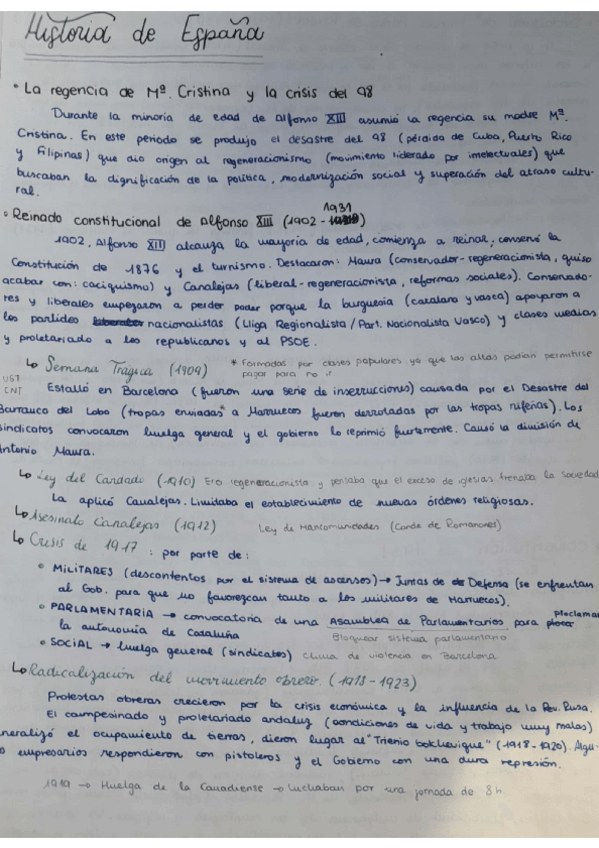 Historia de España
• La regencia de Mª. Cristina y la crisis del 98
Durante la minoria de edad de Alfonso XIII asumió la regencia su madre Mª.
Cristina. En este periodo se produjo el desastre del 98 (pérdida de Cuba, Puerto Rico
y Filipinas) que dio origen al regeneracionismo (movimiento liderado por intelectuales) que
buscaban la dignificación de la política, modernización social y superación del atraso cultu-
ral.
1931
• Reinado constitucional de Alfonso XIII (1902 - )
1902, Alfonso XIII alcanza la mayoría de edad, comienza a reinar; conservó la
Constitución de 1876 y el turnismo. Destacaron: Maura (conservador-regeneracionista, quiso
acabar con: caciquismo) y Canalejas (liberal-regeneracionista, reformas sociales). Conservado-
res y liberales empezaron a perder poder porque la burguesía (catalana y vasca) apoyaron a
los partidos nacionalistas (Lliga Regionalista / Part. Nacionalista Vasco) y clases medias
y proletariado a los republicanos y al PSOE.
↳ Semana Trágica (1909) * Formadas por clases populares ya que las altas podían permitirse
pagar para no ir
UGT
CNT
Estalló en Barcelona (fueron una serie de insurrecciones) causada por el Desastre del
Barranco del Lobo (tropas enviadas* a Marruecos fueron derrotadas por las tropas rifeñas). Los
sindicatos convocaron huelga general y el gobierno lo reprimió fuertemente. Causó la dimisión de
Antonio Maura.
↳ Ley del Candado (1910) Era regeneracionista y pensaba que el exceso de iglesias frenaba la sociedad
La aplicó Canalejas. Limitaba el establecimiento de nuevas órdenes religiosas.
↳ Asesinato Canalejas (1912) Ley de Mancomunidades (Conde de Romanones)
↳ Crisis de 1917 : por parte de:
• MILITARES (descontentos por el sistema de ascensos) → Juntas de Defensa (se enfrentan
al Gob. para que no favorezcan tanto a los militares de Marruecos).
• PARLAMENTARIA → convocatoria de una Asamblea de Parlamentarios para proclamar
la autonomía de Cataluña Bloquear sistema parlamentario
• SOCIAL → huelga general (sindicatos) clima de violencia en Barcelona
↳ Radicalización del movimiento obrero. (1918-1923)
Protestas obreras crecieron por la crisis económica y la influencia de la Rev. Rusa.
El campesinado y proletariado andaluz (condiciones de vida y trabajo muy malas)
generalizó el ocupamiento de tierras, dieron lugar al "Trienio bolchevique" (1918-1920). Algu-
empresarios respondieron con pistoleros y el Gobierno con una dura represión.
1919 → Huelga de la Canadiense → Luchaban por una jornada de 8h.